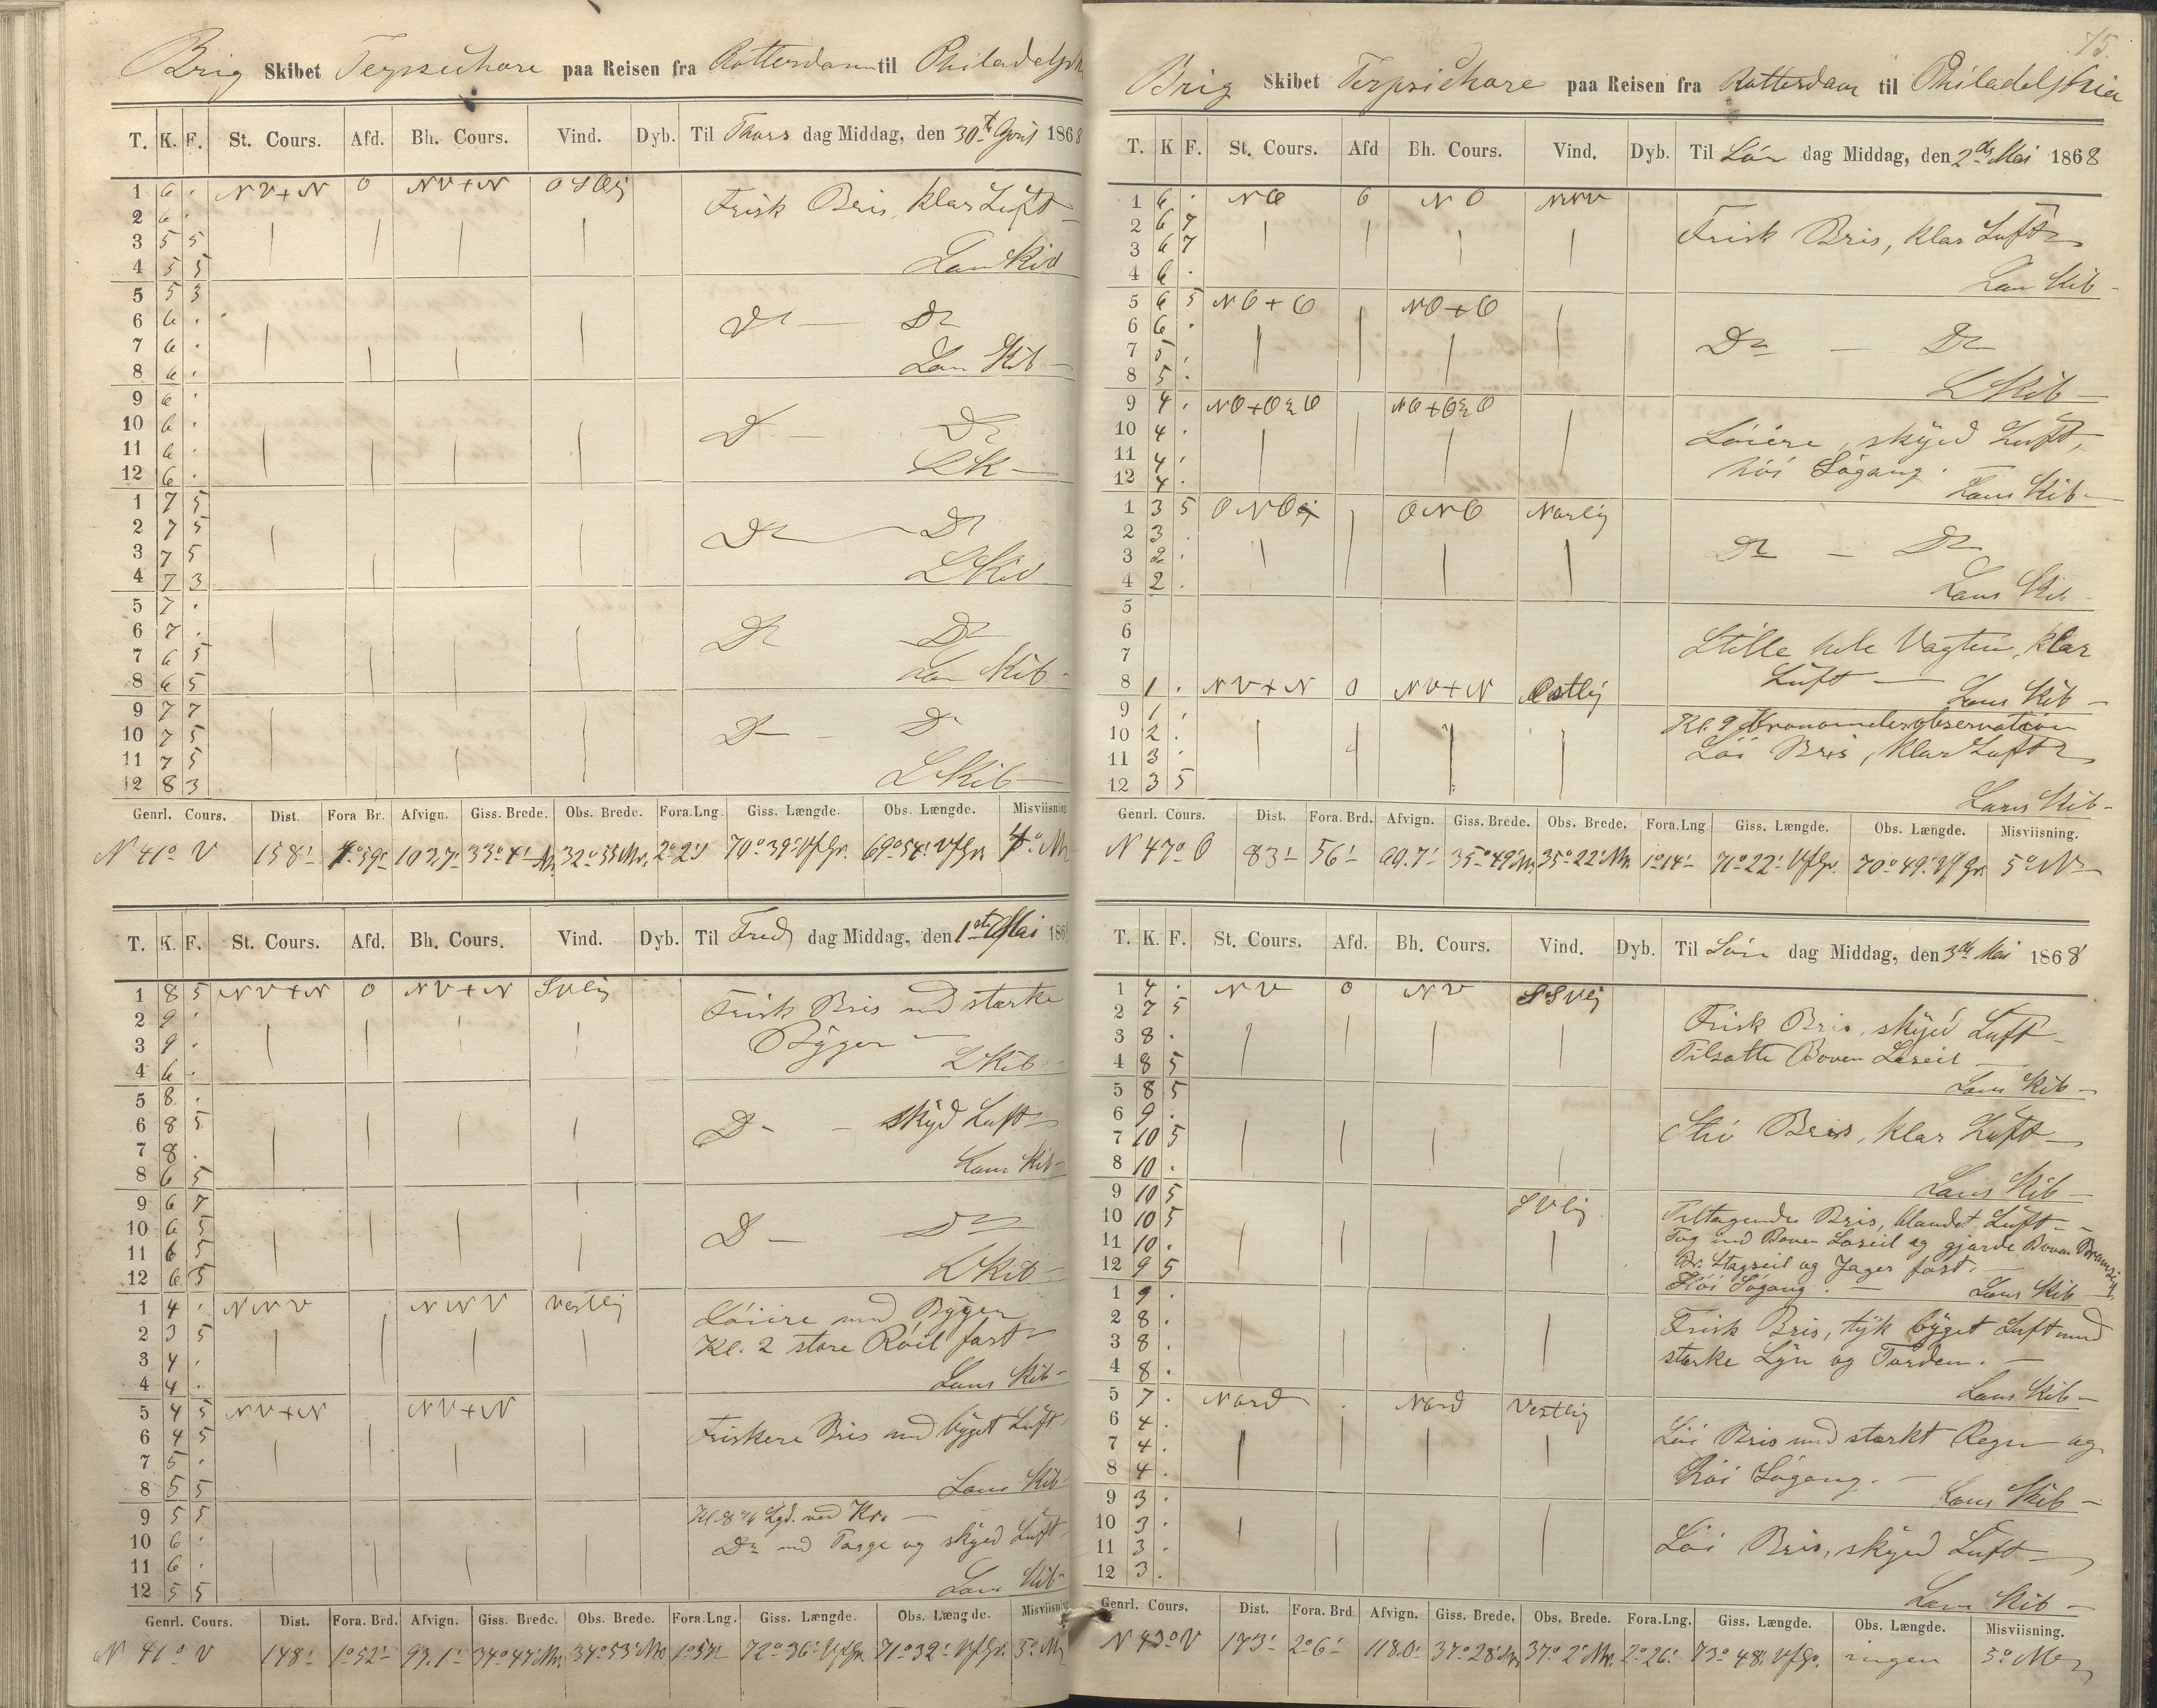 Brig Skibet Terpsichore paa Reisen fra Rotterdam til Philadelph
T. K. F. St. Cours. Afd. Bh. Cours. Vind. Dyb. Til Thors dag Middag, den 30te April 1868
1 6 . NV+N 0 NV+N OSOlig Frisk Bris, klar Luft
2 6 .
3 5 5
4 5 5 Lens Kib
5 5 3
6 6 . Do — Do
7 6 .
8 6 . Lens Kib
9 6 .
10 6 . Do — Do
11 6 .
12 6 . LK
1 7 5
2 7 5 Do — Do
3 7 5
4 7 3 LKib
5 7 .
6 7 . Do Do
7 6 5
8 6 5 Lens Kib
9 7 7
10 7 5 Do — Do
11 7 5
12 8 3 LKib
Genrl. Cours. Dist. Fora Br. Afvign. Giss. Brede. Obs. Brede. Fora.Lng. Giss. Længde. Obs. Længde. Misviisning
N 41° V 158' 1°59' 103,7' 33°4' Nr. 32°55' Nr. 2°2' 70°39' VfGr. 69°54' VfGr. 4° Nv
T. K. F. St. Cours. Afd. Bh. Cours. Vind. Dyb. Til Fre dag Middag, den 1ste Mai 186
1 8 5 NV+N 0 NV+N SVlig Frisk Bris med stærke
2 9 . Byger
3 9 .
4 6 . LKib
5 8 .
6 8 5 Do — skyd Luft
7 8 .
8 6 5 Lens Kib
9 6 7
10 6 5 Do — Do
11 6 5
12 6 5 LKib
1 4 . NNV NNV Vestlig Löiere med Byger
2 3 5 Kl. 2 store Röil fast
3 4 .
4 4 . Lens Kib
5 4 5 NV+N NV+N
6 4 5 Friskere Bris med byget Luft
7 5 .
8 5 5 Lens Kib
9 5 5 Kl. 8 Lgd. ved Kro
10 6 . Do med Taage og skyed Luft
11 6 .
12 5 5 Lens Kib
Genrl. Cours. Dist. Fora. Brd. Afvign. Giss. Brede. Obs. Brede. Fora.Lng. Giss. Længde. Obs. Længde. Misviisning
N 41° V 148' 1°52' 97.1' 34°47' Nr. 34°53' Nr. 1°57' 72°36' VfGr. 71°32' VfGr. 5° Nv
75.
Brig Skibet Terpsichore paa Reisen fra Rotterdam til Philadelphia
T. K F. St. Cours. Afd Bh. Cours. Vind. Dyb. Til Lör dag Middag, den 2de Mai 1868
1 6 . NO 0 NO NNV
2 6 7 Frisk Bris, klar Luft
3 6 7
4 6 . Lens Kib
5 6 5 NO+O NO+O
6 6 . Do — Do
7 5 .
8 5 . LKib
9 4 . NO+O½O NO+O½O
10 4 . Löiere, skyed Luft,
11 4 . höi Sögang.
12 4 . Lens Kib
1 3 5 ONO ONO Norlig
2 3 .
3 2 . Do — Do
4 2 . Lens Kib
5
6 Stille hele Vagten, klar
7 Luft
8 1 . NV+N 0 NV+N Ostlig Lens Kib
9 1 . Kl. 9 Kronometerobservation
10 2 . Löi Bris, klar Luft
11 3 .
12 3 5 Lens Kib
Genrl. Cours. Dist. Fora. Brd. Afvign. Giss. Brede. Obs. Brede. Fora.Lng. Giss. Længde. Obs. Længde. Misviisning.
N 47° O 83' 56' 60.7' 35°49' Nr. 35°22' Nr. 1°14' 71°22' VfGr. 70°49' VfGr. 5° Nv
T. K. F. St. Cours. Afd. Bh. Cours. Vind. Dyb. Til Sön dag Middag, den 3de Mai 1868
1 4 . NV 0 NV SSVlig
2 7 5 Frisk Bris, skyed Luft
3 8 . Tilsatte Boven Læseil
4 8 5 Lens Kib
5 8 5
6 9 . Stiv Bris, klar Luft
7 10 5
8 10 . Lens Kib
9 10 5 SVlig Tiltagende Bris, blandet Luft
10 10 5 Tog ind Boven Læseil og gjorde Boven Bramseil
11 10 . Br. Stagseil og Jager fast.
12 9 5 Höi Sögang. Lens Kib
1 9 .
2 8 . Frisk Bris, tyk byget Luft med
3 8 . stærke Lyn og Torden.
4 8 . Lens Kib
5 7 . Nord . Nord Vestlig
6 4 . Löi Bris med stærkt Regn og
7 4 .
8 4 . höi Sögang. Lens Kib
9 3 .
10 3 . Löi Bris, skyed Luft
11 3 .
12 3 . Lens Kib
Genrl. Cours. Dist. Fora. Brd. Afvign. Giss. Brede. Obs. Brede. Fora.Lng. Giss. Længde. Obs. Længde. Misviisning.
N 43° V 173' 2°6' 118.0' 37°28' Nr. 37°2' Nr. 2°26' 73°48' VfGr. ingen 5° Nv